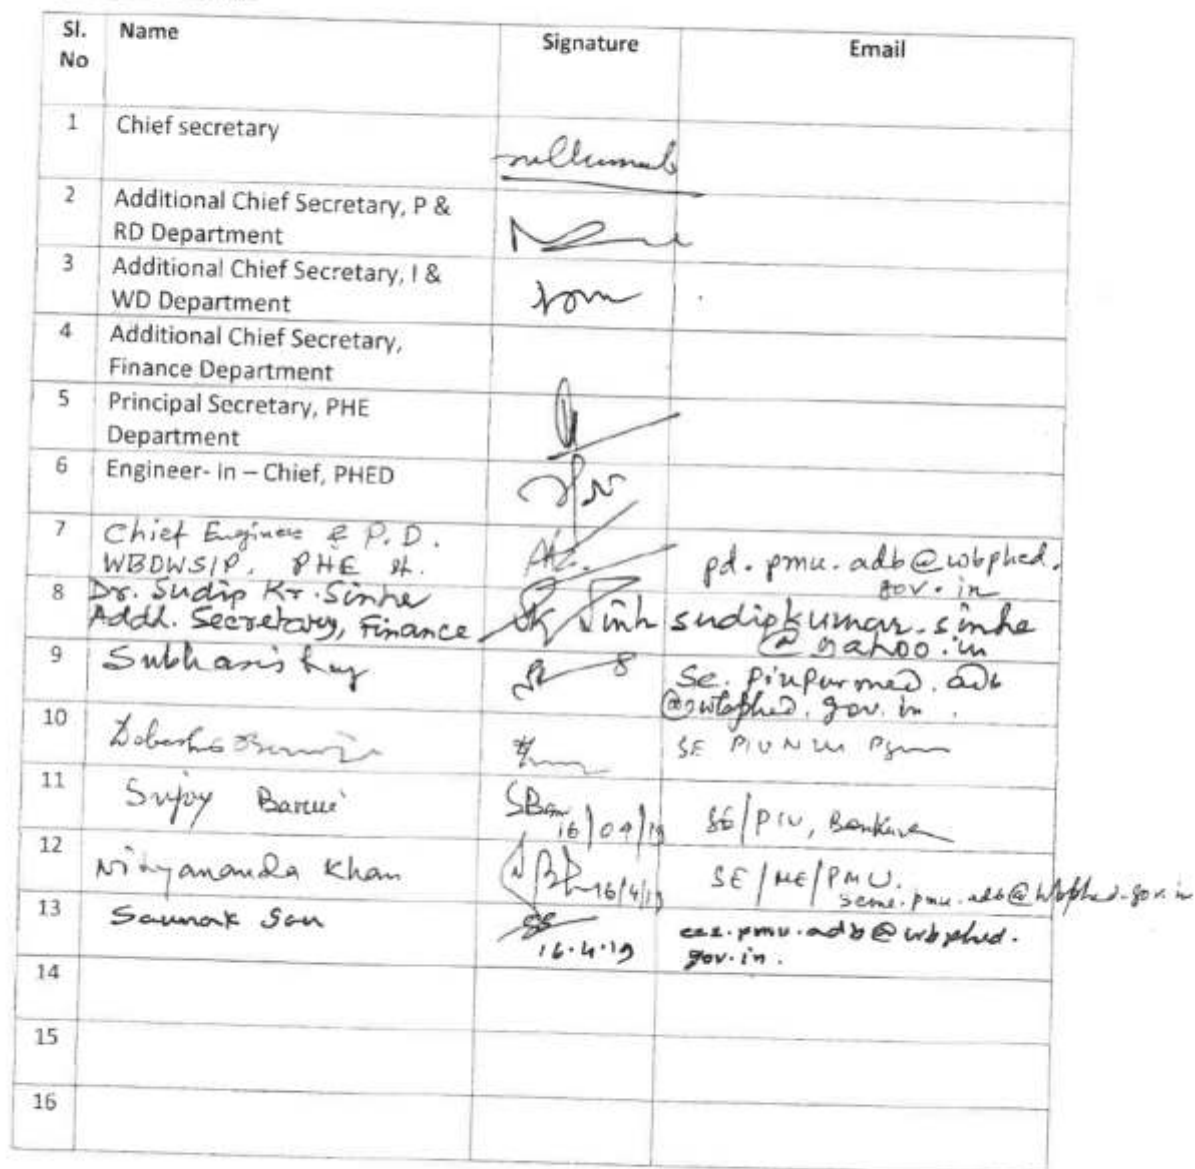 Sl. No Name Signature Email
1 Chief secretary
2 Additional Chief Secretary, P &
RD Department
3 Additional Chief Secretary, I &
WD Department
4 Additional Chief Secretary,
Finance Department
5 Principal Secretary, PHE
Department
6 Engineer- in – Chief, PHED
7 Chief Engineer & P.D.
WBDWSIP, PHE pd.pmu.adb@wbphed.
gov.in
8 Dr. Sudip Kr. Sinha sudipkumar.sinha
Addl. Secretary, Finance @yahoo.in
9 Subhasis
@wbphed.gov.in
10 SE PIU
11 Srijoy Barui 16/04/19 SE/PIU, Bankura
12 Nityananda Khan 16/4/19 SE/ME/PMU.
seme.pmu.adb@wbphed.gov.in
13 Saunak Sau SS
16.4.19 gov.in.
14
15
16